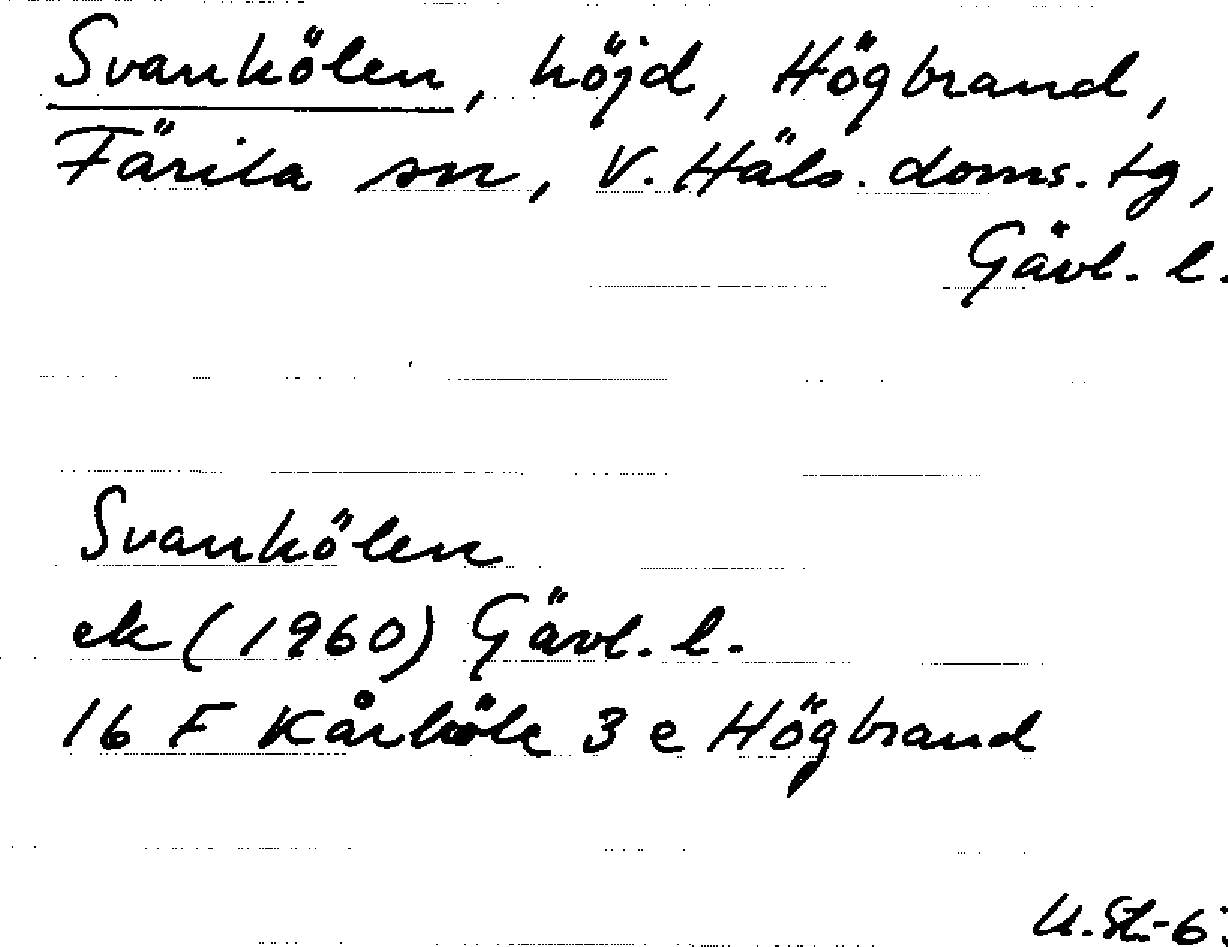 Svankölen, höjd, Högbrand,
Färila sn, V. Häls. doms. tg,
Gävl. l.
Svankölen
ek (1960) Gävl. l.
16 F Kårböle 3 e Högbrand